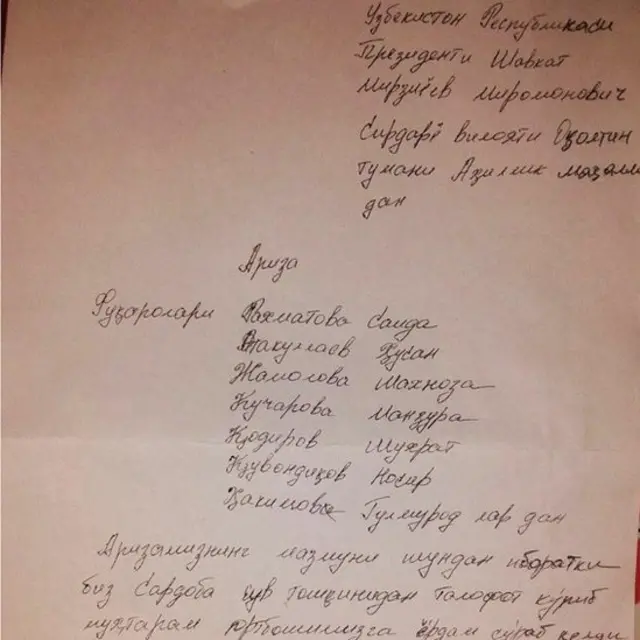 Ўзбекистон Республикаси
Президенти Шавкат
Мирзиёев Миромонович
Сирдарё вилояти Оқолтин
тумани Аҳиллик маҳалла
дан
Ариза
Фуқаролари Рахматова Саида
Эсан
Жамолова Шахноза
Кучарова Манзура
Қодиров Шухрат
Қувондиқов Носир
Ҳакимова Гулмурод лар дан
Аризамизнинг мазмуни шундан иборатки
биз Сардоба сув тошқинидан талофот кўриб
муҳтарам юртбошимизга ёрдам сўраб